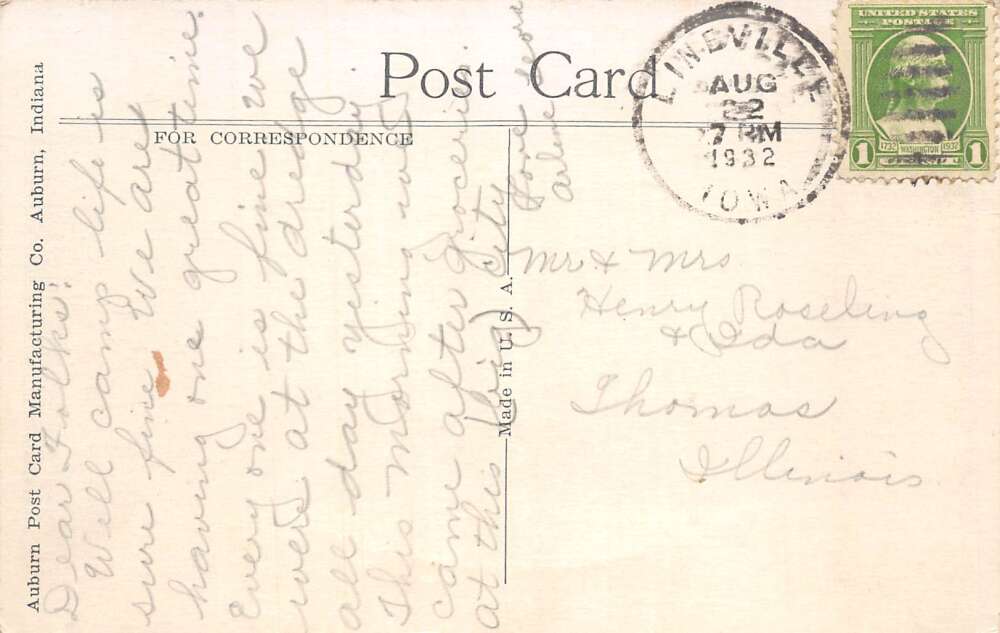 Post Card
FOR CORRESPONDENCE
Auburn Post Card Manufacturing Co. Auburn, Indiana
Made in U. S. A.
UNITED STATES
POSTAGE
1 1732 WASHINGTON 1932 1
LINEVILLE
AUG
22
7 PM
1932
IOWA
Dear Folks:
Well camp life is
sure fine We are
having one great time.
Every one is fine we
were at the dredge
all day yesterday.
This morning we
came after groceries
at this (big) city
Love
Mr & Mrs
Henry Roseling
& Ida
Thomas
Illinois